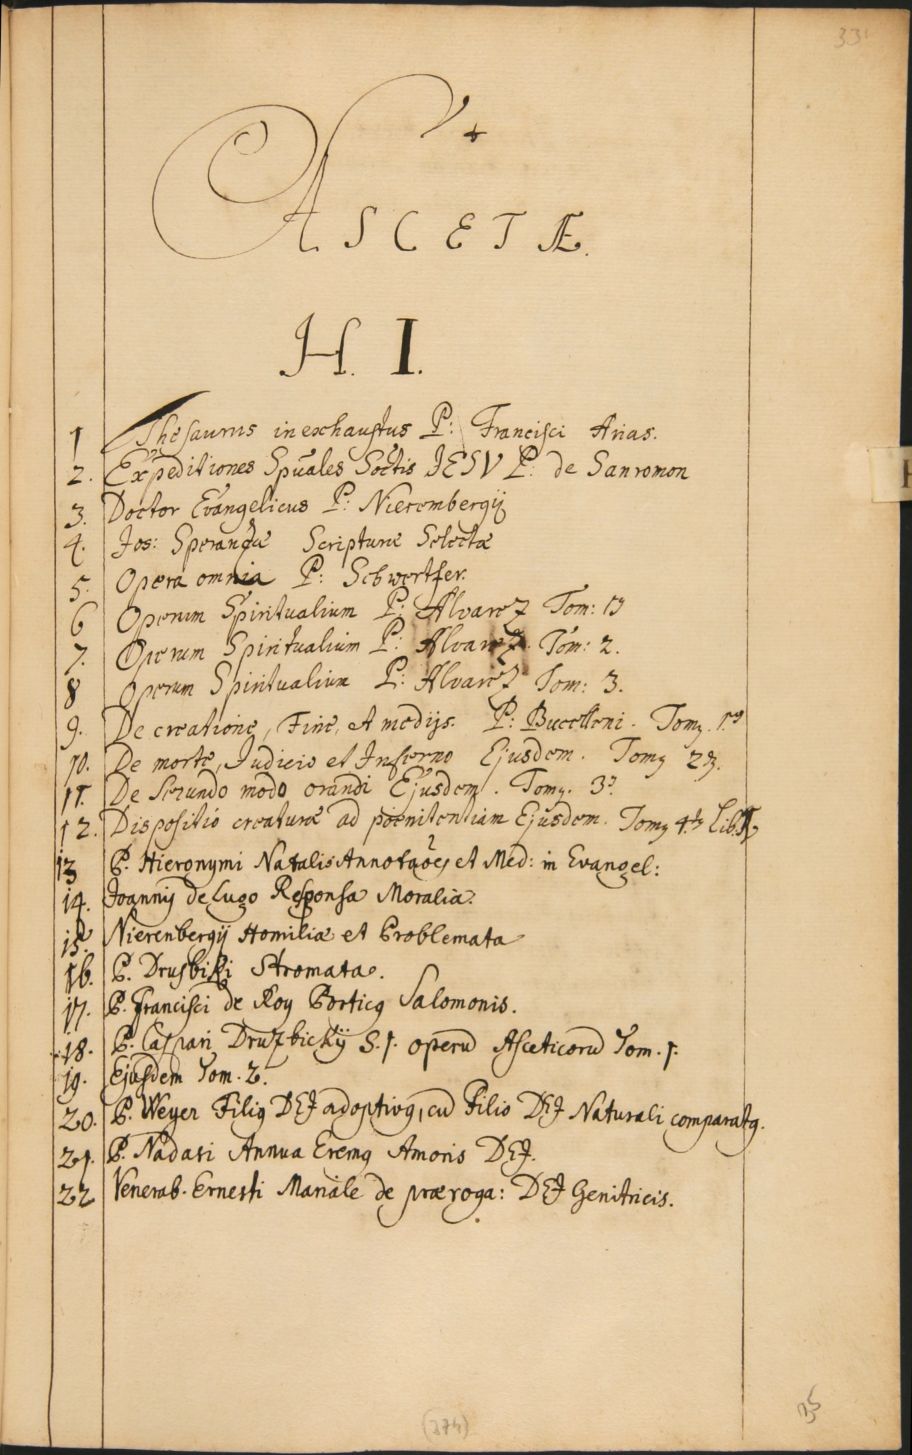 33
ASCETÆ.
H. I.
1 Thesaurus inexhaustus P: Francisci Arias.
2. Expeditiones Spuales Soctis JESV P: de Sanromon
3. Doctor Evangelicus P: Nierembergij
4. Jos: Speranza Scripturæ Selectæ
5. Opera omnia P: Schwertfer.
6 Operum Spiritualium P: Alvarez Tom: 1
7. Operum Spiritualium P: Alvarez Tom: 2.
8 Operum Spiritualium P: Alvarez Tom: 3.
9. De creatione, Fine, et medijs. P: Bucelleni. Tomꝯ. 1us
10. De morte, Judicio et Inferno Ejusdem. Tomꝯ 2dꝯ.
11. De Secundo modo orandi Ejusdem. Tomꝯ. 3us
12. Dispositio creaturæ ad pœnitentiam Ejusdem. Tomꝯ 4tꝯ Lib.
13 P. Hieronymi Natalis Annotaões et Med: in Evangel:
14. Joannis de Lugo Responsa Moralia.
15. Nierenbergij Homiliæ et Problemata
16. P. Drusbiki Stromata.
17. P. Francisci de Roy Porticꝯ Salomonis.
18. P. Caspari Druzbickij S.J. operũ Asceticorũ Tom. 1.
19. Ejusdem Tom. 2.
20. P. Weyer Filiꝯ DEJ adoptivꝯ, cũ Filio DEJ Naturali comparatꝯ.
21. P. Nadasi Annua Eremꝯ Amoris DEJ.
22 Venerab. Ernesti Mariale de præroga: DEJ Genitricis.
35
(374)